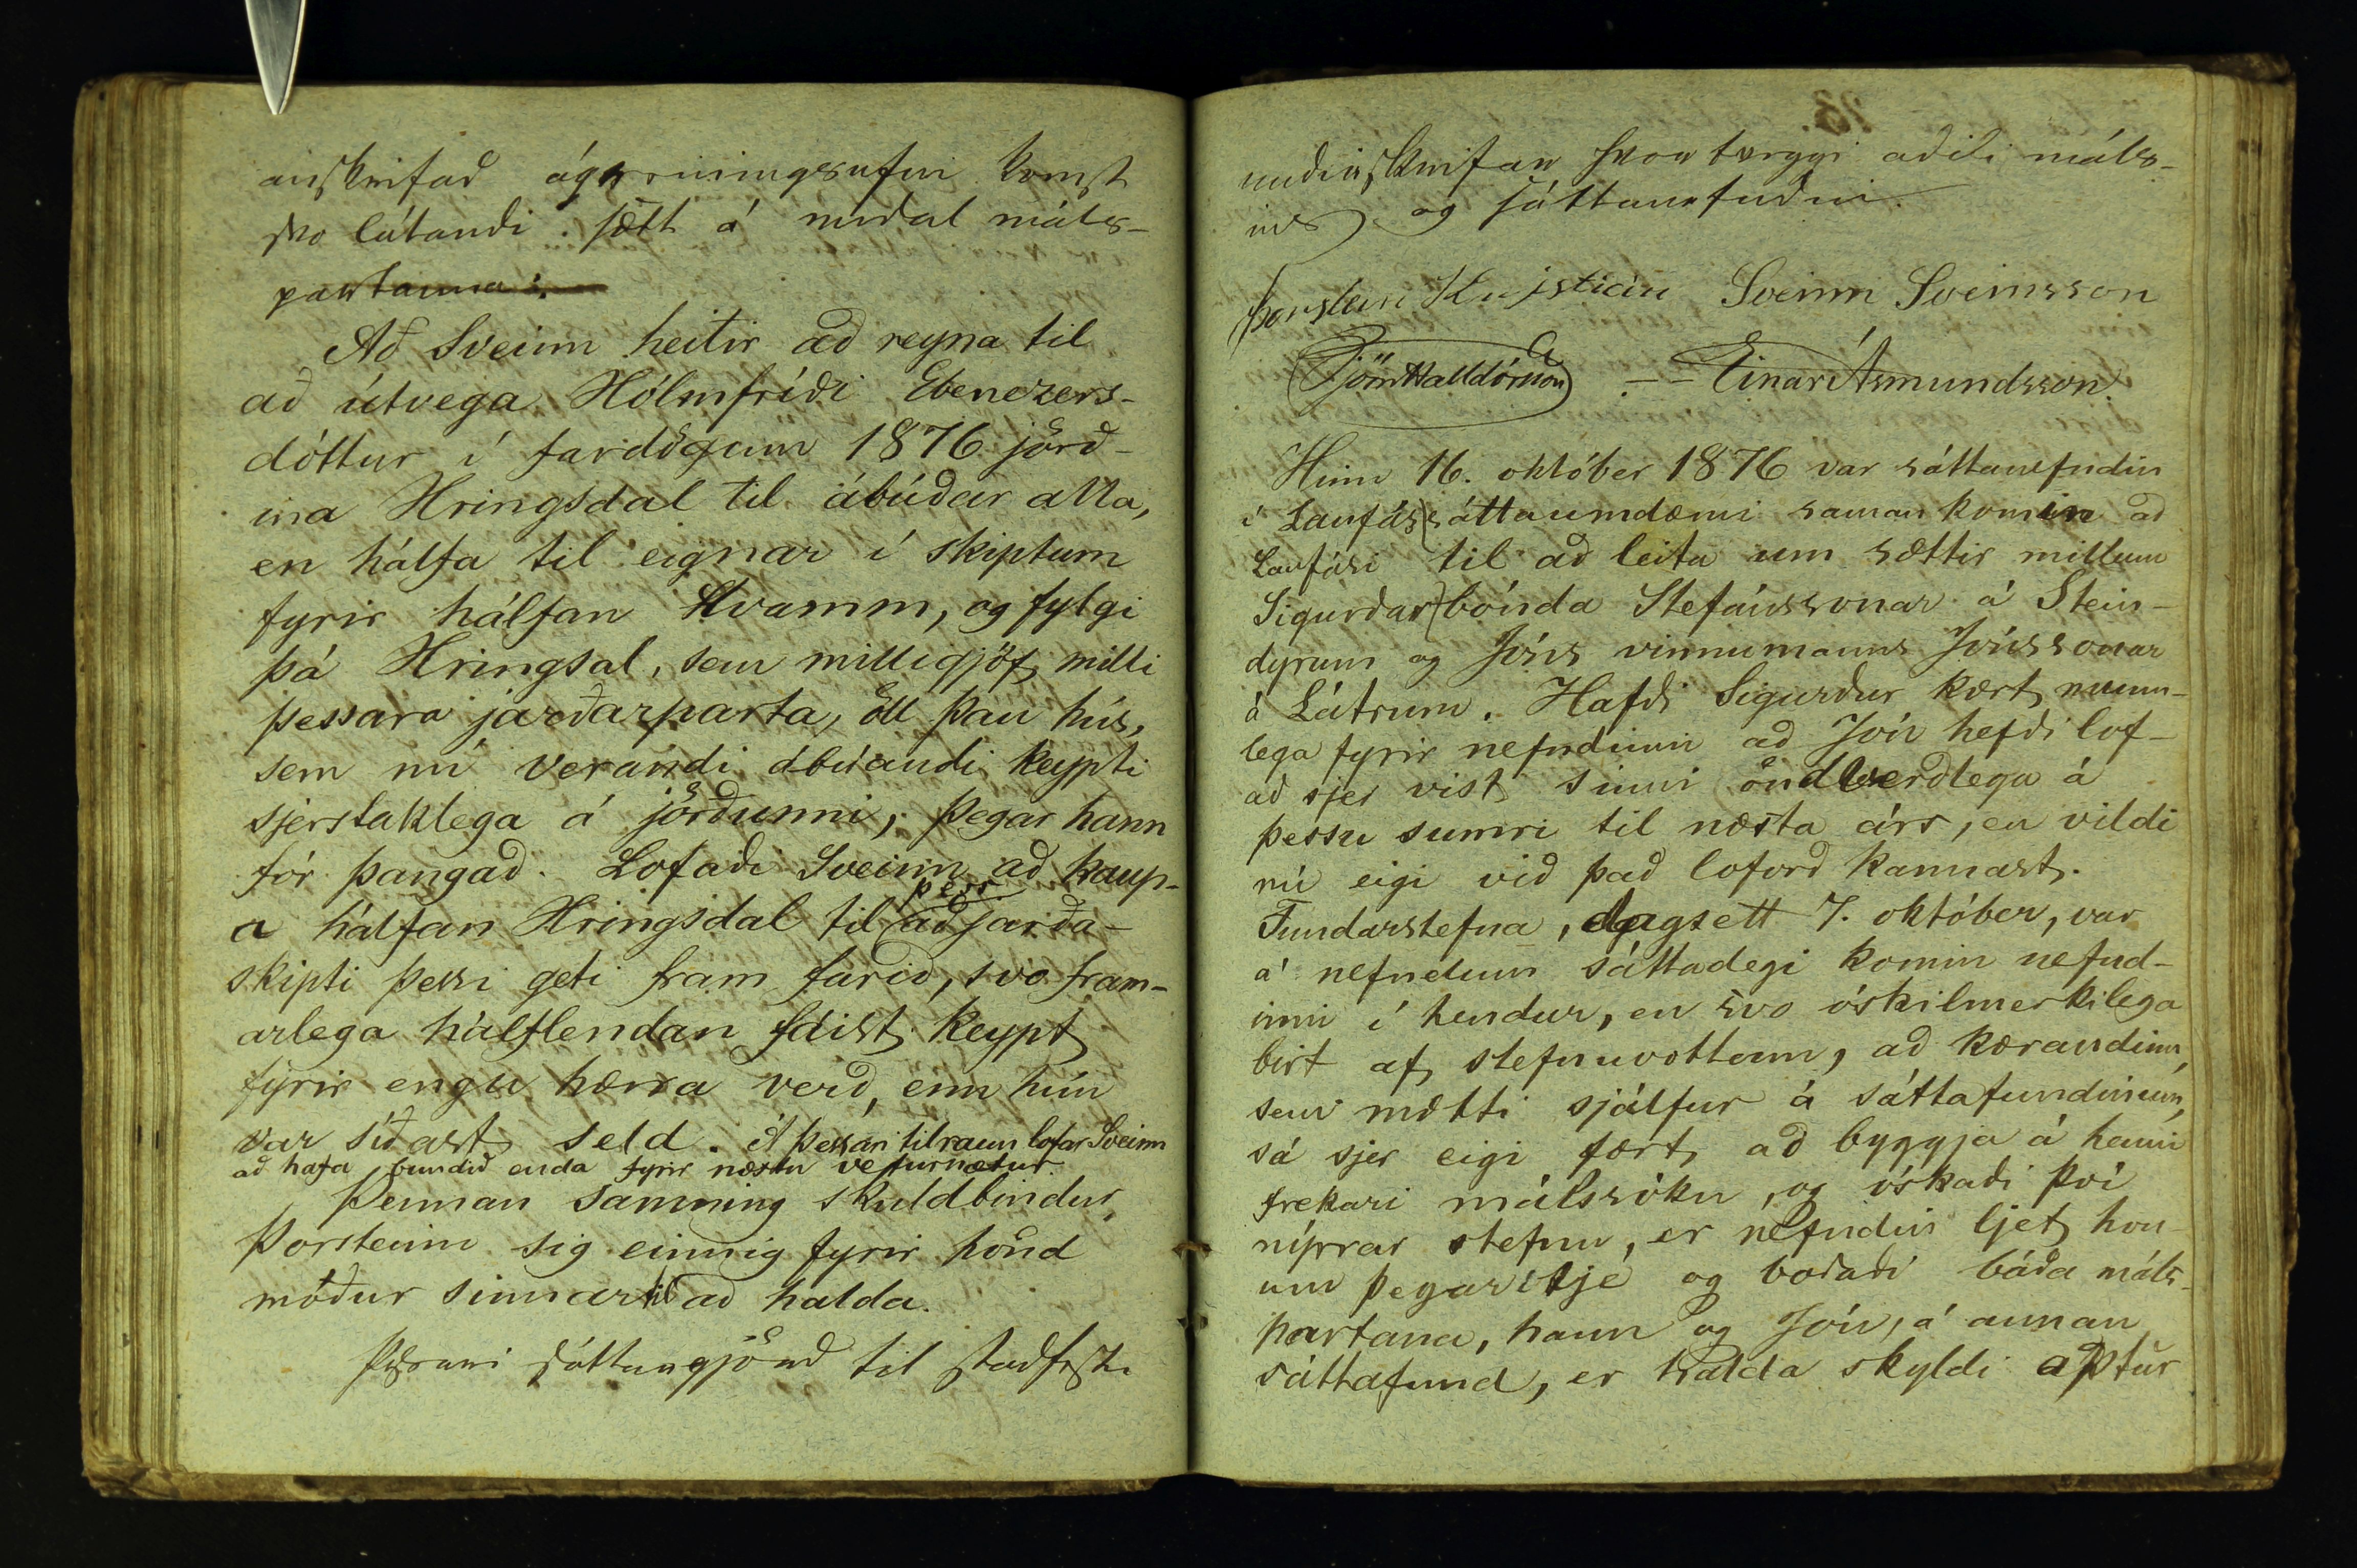 anskrifað ágreiningsefni komst
svo látandi sætt á meðal máls-
partanna:
Að Sveinn heitir að reyna til
að útvega Hólmfríði Ebenezers-
dóttur í fardögum 1876 jörð-
ina Hringsdal til ábúðar alla,
en hálfa til eignar í skiptum
fyrir hálfan Hvamm, og fylgi
þá Hringsal, sem milligjöf milli
þessara jarðarparta, öll þau hús,
sem nú verandi ábúandi keypti
sjerstaklega á jörðunni, þegar hann
fór þangað. Lofaði Sveinn að kaup-
a hálfan Hringsdal til þess að jarða-
skipti þessi geti fram farið, svo fram-
arlega hálflendan fáist keypt
fyrir engu hærra verð, enn hún
var síðast seld. Á þessari tilraun lofar Sveinn
að hafa bundið enda fyrir næstu veturnætur.
Þennan samning skuldbindur
Þorsteinn sig einnig fyrir hönd
móður sinnar til að halda.
Þessari sáttargjörð til staðfestu
undirskrifar hvortveggi aðili máls-
ins og sáttanefndin.
Þorsteinn Kristinn Sveinn Sveinsson
Björn Halldórsson -- Einar Ásmundsson.
Hinn 16. október 1876 var sáttanefndin
í Laufássáttaumdæmi saman komin að
Laufási til að leita um sættir millum
Sigurðar bónda Stefánssonar á Stein-
dyrum og Jóns vinnumanns Jónssonar
á Látrum. Hafði Sigurður kært munn-
lega fyrir nefndinni að Jón hefði lof-
að sjer vist sinni öndverðlega á
þessu sumri til næsta árs, en vildi
nú eigi við það loforð kannast.
Fundarstefna, dagsett 7. október, var
á nefndum sáttadegi komin nefnd-
inni í hendur, en svo óskilmerkilega
birt af stefnuvottum, að kærandinn,
sem mætti sjálfur á sáttafundinum,
sá sjer eigi fært að byggja á henni
frekari málssókn, og óskaði því
nýrrar stefnu, er nefndin ljet hon-
um þegar í tje og boðaði báða máls-
partana, hann og Jón, á annan
sáttafund, er halda skyldi aptur